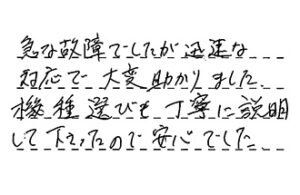 急な故障でしたが迅速な
対応で大変助かりました.
機種選びも丁寧に説明
して下さったので安心でした